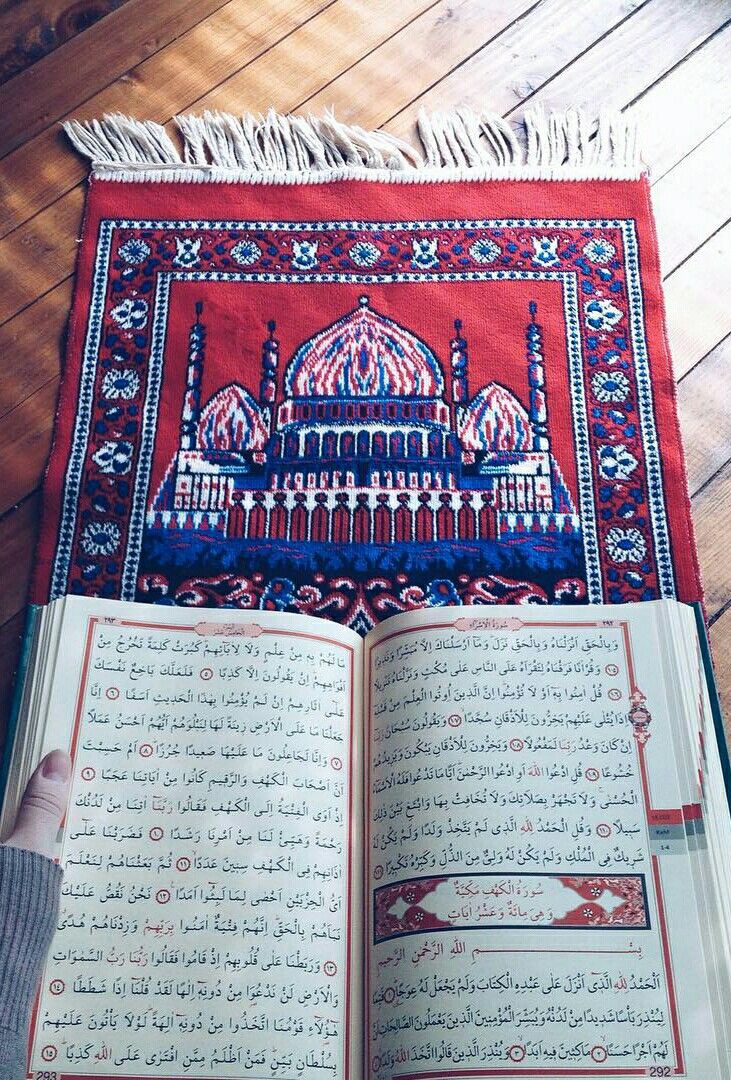 ٢٩٢
سُورَةُ الْاِسْرَاءِ
وَبِالْحَقِّ اَنْزَلْنَاهُ وَبِالْحَقِّ نَزَلَ وَمَا اَرْسَلْنَاكَ اِلَّا مُبَشِّرًا وَنَذِيرًا
١٠٥ وَقُرْاٰنًا فَرَقْنَاهُ لِتَقْرَاَهُ عَلَى النَّاسِ عَلٰى مُكْثٍ وَنَزَّلْنَاهُ تَنْزِيلًا
١٠٦ قُلْ اٰمِنُوا بِهِ اَوْ لَا تُؤْمِنُوا اِنَّ الَّذِينَ اُوتُوا الْعِلْمَ مِنْ قَبْلِهِ
اِذَا يُتْلٰى عَلَيْهِمْ يَخِرُّونَ لِلْاَذْقَانِ سُجَّدًا ١٠٧ وَيَقُولُونَ سُبْحَانَ رَبِّنَا
اِنْ كَانَ وَعْدُ رَبِّنَا لَمَفْعُولًا ١٠٨ وَيَخِرُّونَ لِلْاَذْقَانِ يَبْكُونَ وَيَزِيدُهُمْ
خُشُوعًا ١٠٩ قُلِ ادْعُوا اللّٰهَ اَوِ ادْعُوا الرَّحْمٰنَ اَيًّا مَا تَدْعُوا فَلَهُ الْاَسْمَاءُ
الْحُسْنٰى وَلَا تَجْهَرْ بِصَلَاتِكَ وَلَا تُخَافِتْ بِهَا وَابْتَغِ بَيْنَ ذٰلِكَ
سَبِيلًا ١١٠ وَقُلِ الْحَمْدُ لِلّٰهِ الَّذِي لَمْ يَتَّخِذْ وَلَدًا وَلَمْ يَكُنْ لَهُ
شَرِيكٌ فِي الْمُلْكِ وَلَمْ يَكُنْ لَهُ وَلِيٌّ مِنَ الذُّلِّ وَكَبِّرْهُ تَكْبِيرًا ١١١
سُورَةُ الْكَهْفِ مَكِّيَّةٌ
وَهِيَ مِائَةٌ وَعَشْرُ اٰيَاتٍ
بِسْمِ اللّٰهِ الرَّحْمٰنِ الرَّحِيمِ
اَلْحَمْدُ لِلّٰهِ الَّذِي اَنْزَلَ عَلٰى عَبْدِهِ الْكِتَابَ وَلَمْ يَجْعَلْ لَهُ عِوَجًا ١ قَيِّمًا
لِيُنْذِرَ بَأْسًا شَدِيدًا مِنْ لَدُنْهُ وَيُبَشِّرَ الْمُؤْمِنِينَ الَّذِينَ يَعْمَلُونَ الصَّالِحَاتِ اَنَّ
لَهُمْ اَجْرًا حَسَنًا ٢ مَاكِثِينَ فِيهِ اَبَدًا ٣ وَيُنْذِرَ الَّذِينَ قَالُوا اتَّخَذَ اللّٰهُ وَلَدًا ٤
292
Kehf
1-4
٢٩٣
مَا لَهُمْ بِهِ مِنْ عِلْمٍ وَلَا لِاٰبَائِهِمْ كَبُرَتْ كَلِمَةً تَخْرُجُ مِنْ
اَفْوَاهِهِمْ اِنْ يَقُولُونَ اِلَّا كَذِبًا ٥ فَلَعَلَّكَ بَاخِعٌ نَفْسَكَ
عَلٰى اٰثَارِهِمْ اِنْ لَمْ يُؤْمِنُوا بِهٰذَا الْحَدِيثِ اَسَفًا ٦ اِنَّا
جَعَلْنَا مَا عَلَى الْاَرْضِ زِينَةً لَهَا لِنَبْلُوَهُمْ اَيُّهُمْ اَحْسَنُ عَمَلًا
٧ وَاِنَّا لَجَاعِلُونَ مَا عَلَيْهَا صَعِيدًا جُرُزًا ٨ اَمْ حَسِبْتَ
اَنَّ اَصْحَابَ الْكَهْفِ وَالرَّقِيمِ كَانُوا مِنْ اٰيَاتِنَا عَجَبًا ٩
اِذْ اَوَى الْفِتْيَةُ اِلَى الْكَهْفِ فَقَالُوا رَبَّنَا اٰتِنَا مِنْ لَدُنْكَ
رَحْمَةً وَهَيِّئْ لَنَا مِنْ اَمْرِنَا رَشَدًا ١٠ فَضَرَبْنَا عَلٰى
اٰذَانِهِمْ فِي الْكَهْفِ سِنِينَ عَدَدًا ١١ ثُمَّ بَعَثْنَاهُمْ لِنَعْلَمَ
اَيُّ الْحِزْبَيْنِ اَحْصٰى لِمَا لَبِثُوا اَمَدًا ١٢ نَحْنُ نَقُصُّ عَلَيْكَ
نَبَاَهُمْ بِالْحَقِّ اِنَّهُمْ فِتْيَةٌ اٰمَنُوا بِرَبِّهِمْ وَزِدْنَاهُمْ هُدًى
١٣ وَرَبَطْنَا عَلٰى قُلُوبِهِمْ اِذْ قَامُوا فَقَالُوا رَبُّنَا رَبُّ السَّمٰوَاتِ
وَالْاَرْضِ لَنْ نَدْعُوَا مِنْ دُونِهِ اِلٰهًا لَقَدْ قُلْنَا اِذًا شَطَطًا ١٤
هٰؤُلَاءِ قَوْمُنَا اتَّخَذُوا مِنْ دُونِهِ اٰلِهَةً لَوْلَا يَأْتُونَ عَلَيْهِمْ
بِسُلْطَانٍ بَيِّنٍ فَمَنْ اَظْلَمُ مِمَّنِ افْتَرٰى عَلَى اللّٰهِ كَذِبًا ١٥
293